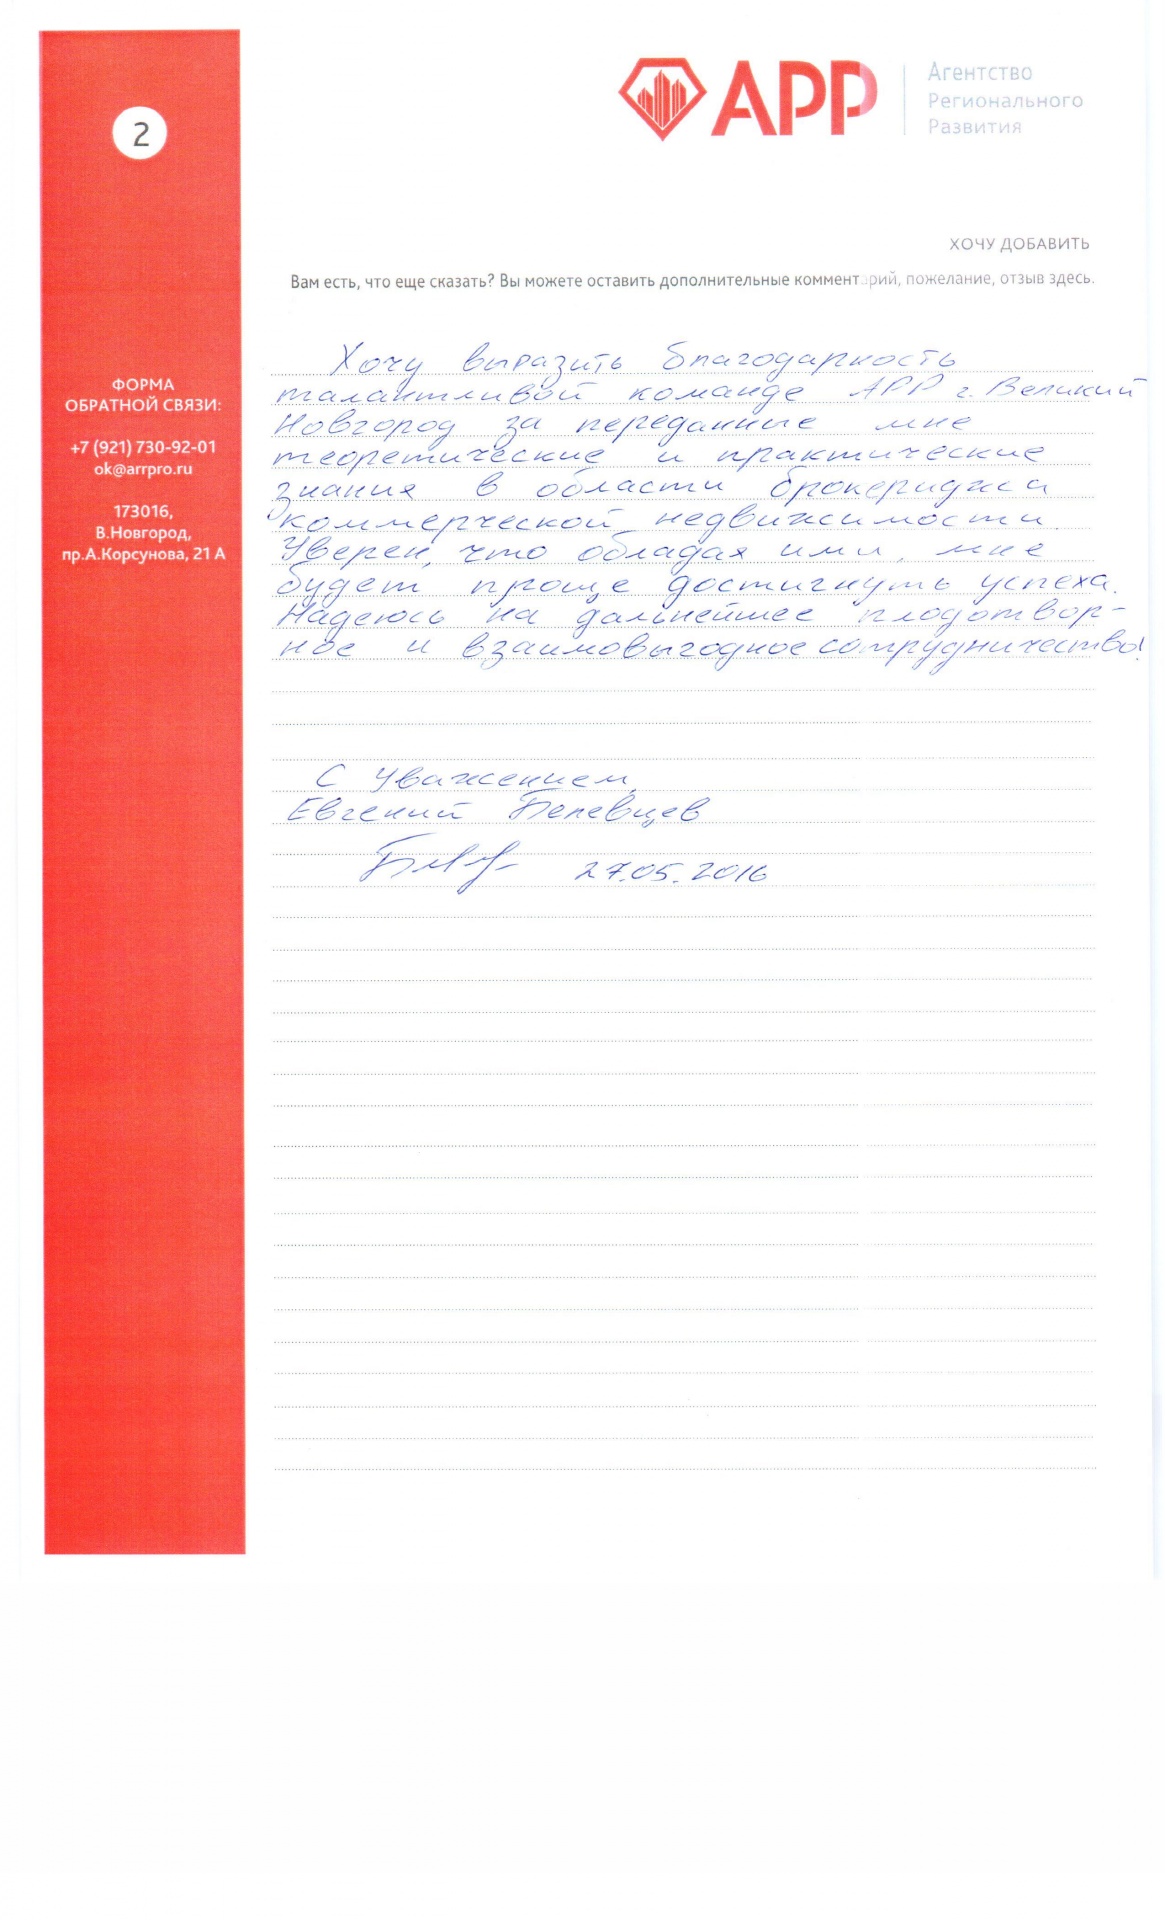 2
АРР
Агентство
Регионального
Развития
ХОЧУ ДОБАВИТЬ
Вам есть, что еще сказать? Вы можете оставить дополнительные комментарий, пожелание, отзыв здесь.
ФОРМА
ОБРАТНОЙ СВЯЗИ:
+7 (921) 730-92-01
ok@arrpro.ru
173016,
В.Новгород,
пр.А.Корсунова, 21 А
Хочу выразить благодарность
талантливой команде АРР г. Великий
Новгород за переданные мне
теоретические и практические
знания в области брокериджа
коммерческой недвижимости.
Уверен, что обладая ими, мне
будет проще достигнуть успеха.
Надеюсь на дальнейшее плодотвор-
ное и взаимовыгодное сотрудничество!
С Уважением,
Евгений
27.05.2016